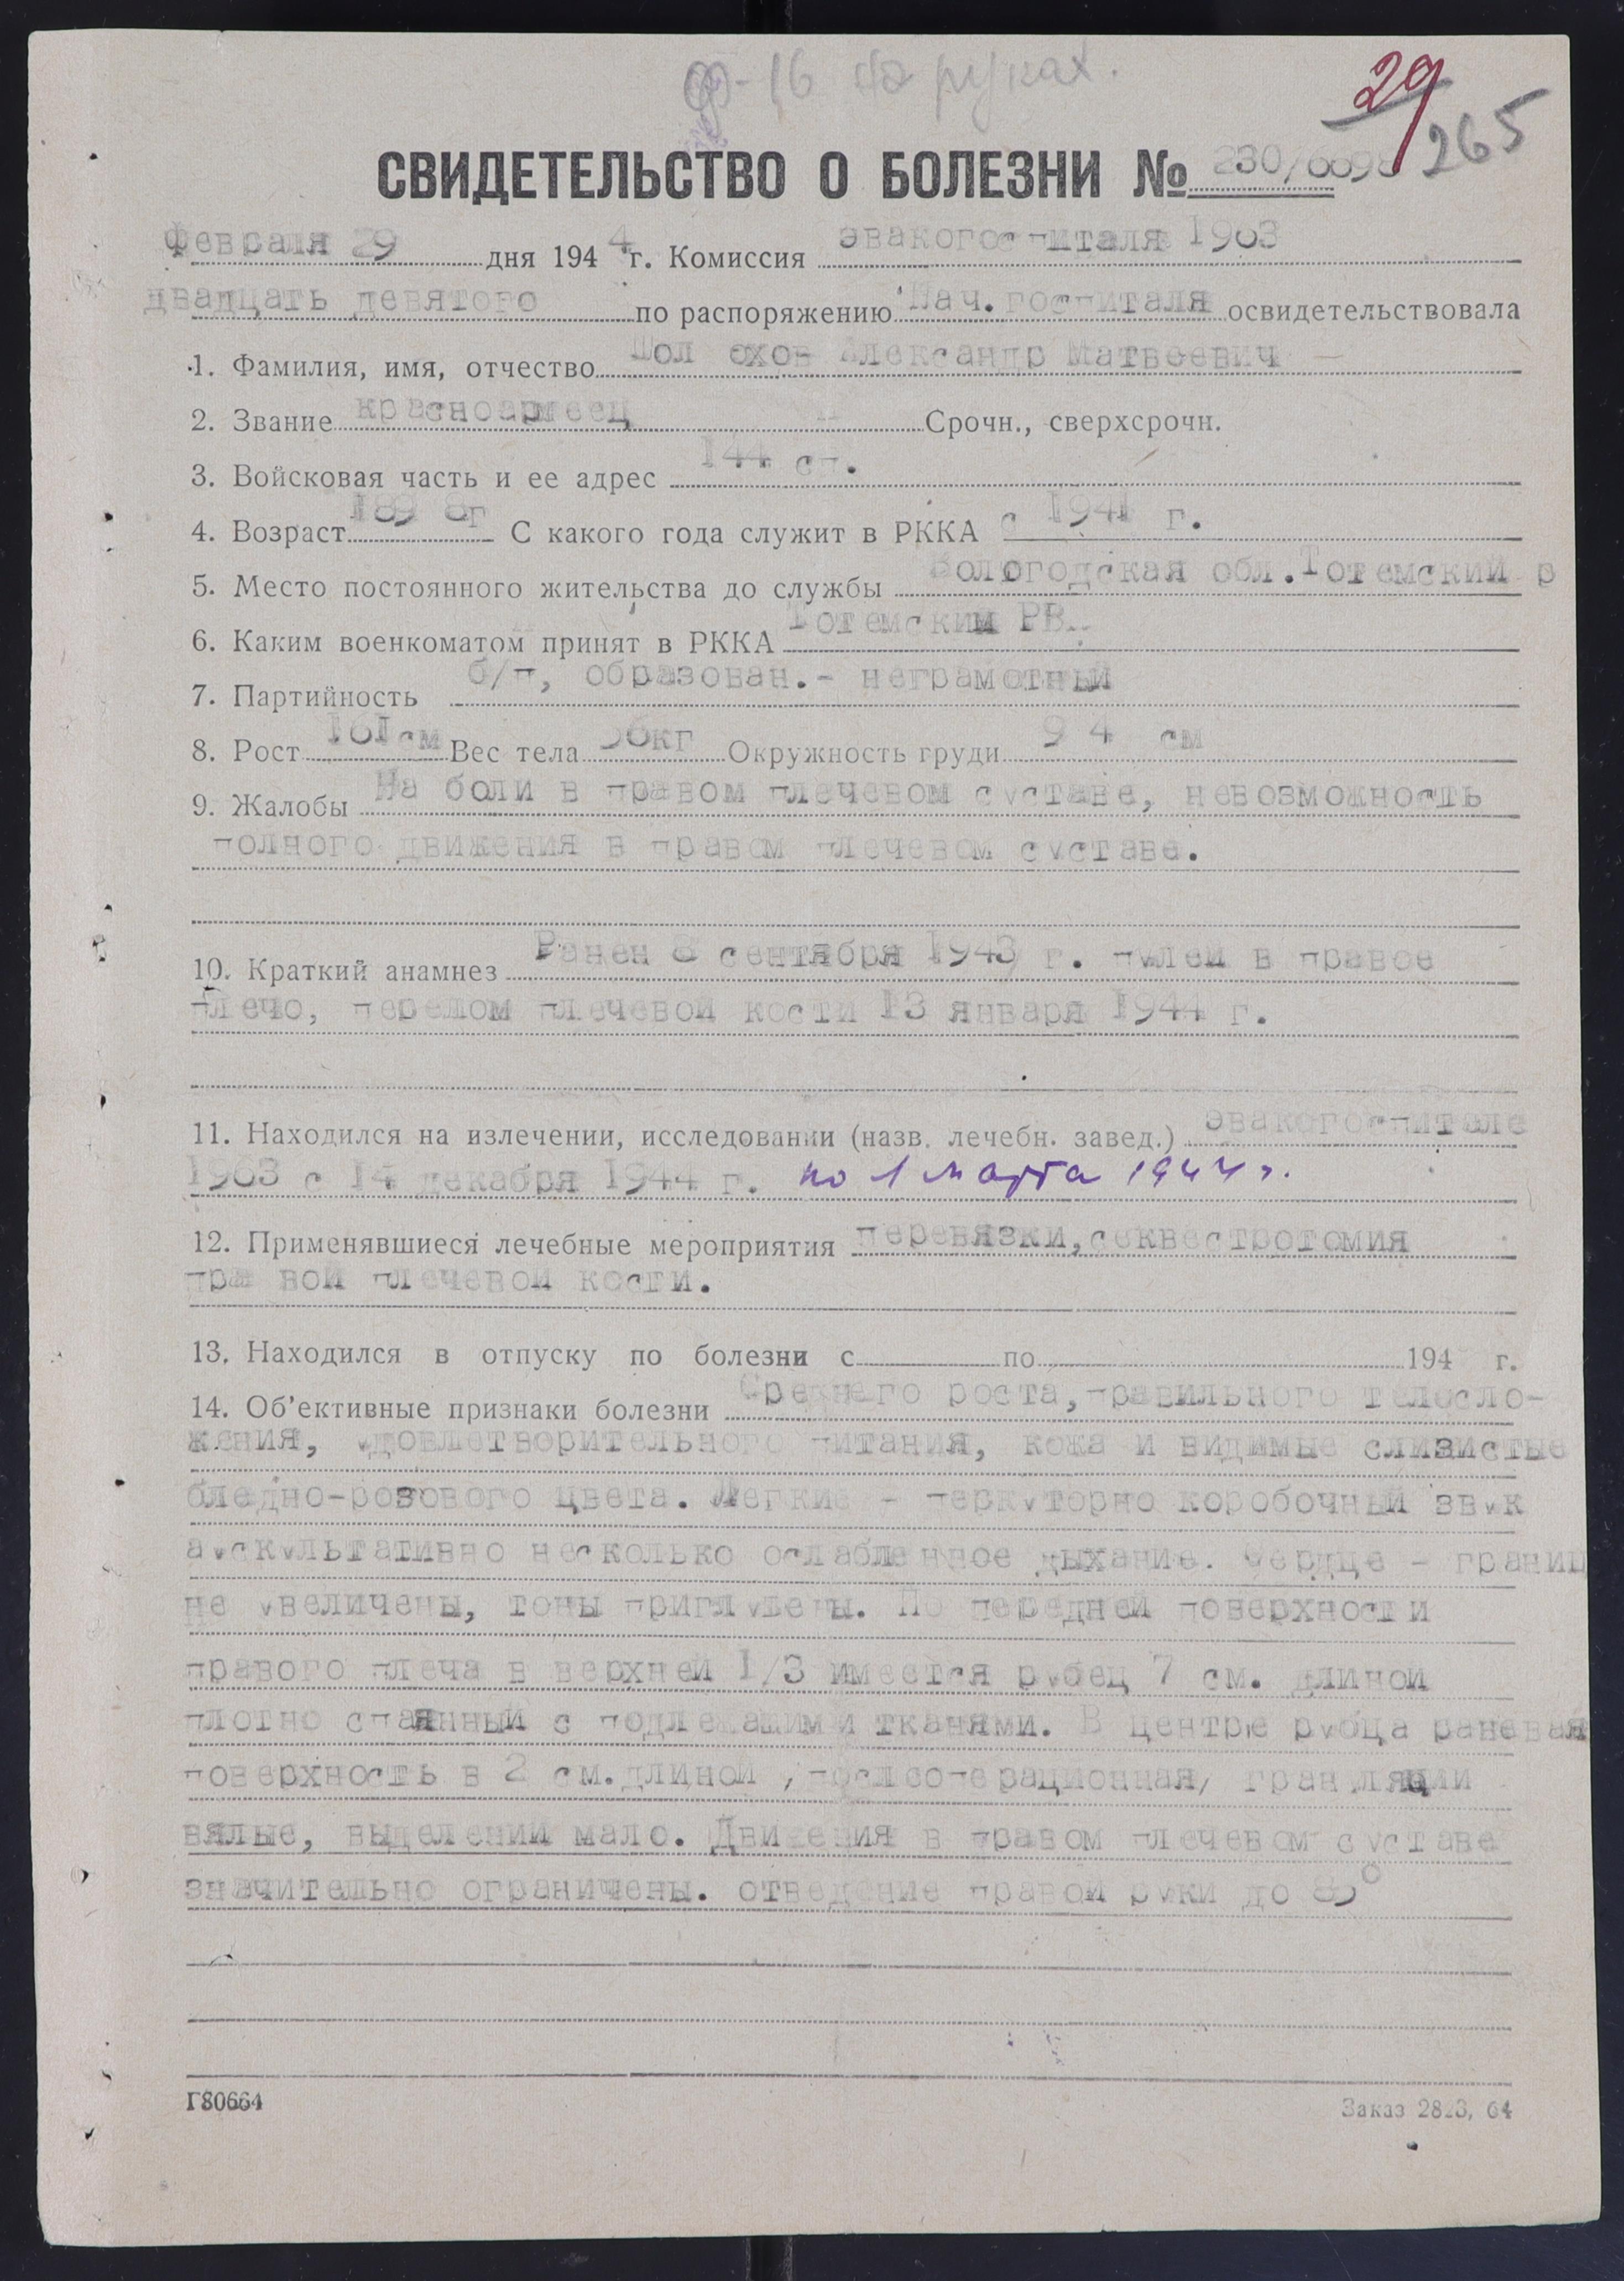 на руках.
29
265
СВИДЕТЕЛЬСТВО О БОЛЕЗНИ № 230/
февраля 29 дня 1944 г. Комиссия эвакогоспиталя 1963
двадцать девятого по распоряжению Нач. госпиталя освидетельствовала
1. Фамилия, имя, отчество Александр Матвеевич
2. Звание красноармеец Срочн., сверхсрочн.
3. Войсковая часть и ее адрес 144 сп.
4. Возраст 1898г С какого года служит в РККА с 1941 г.
5. Место постоянного жительства до службы Вологодская обл. Тотемский р
6. Каким военкоматом принят в РККА Тотемским РВК
7. Партийность б/п, образован.- неграмотный
8. Рост 161см Вес тела 56кг Окружность груди 94 см
9. Жалобы На боли в правом плечевом суставе, невозможность
полного движения в правом плечевом суставе.
10. Краткий анамнез Ранен 8 сентября 1943 г. пулей в правое
плечо, перелом плечевой кости 13 января 1944 г.
11. Находился на излечении, исследовании (назв. лечебн. завед.) эвакогоспитале
1963 с 14 декабря 1944 г. по 1 марта 1944 г.
12. Применявшиеся лечебные мероприятия перевязки, секвестротомия
пра вой плечевой кости.
13. Находился в отпуску по болезни с по 194 г.
14. Об'ективные признаки болезни Среднего роста, правильного телосло-
жения, удовлетворительного питания, кожа и видимые слизистые
бледно-розового цвета. Легкие - перкуторно коробочный звук
аускультативно несколько ослабленное дыхание. Сердце - границ
не увеличены, тоны приглушены. По передней поверхности
правого плеча в верхней 1/3 имеется рубец 7 см. длиной
плотно спаянный с подлежащими тканями. В центре рубца раневая
поверхность в 2 см. длиной /послеоперационная/ грануляции
вялые, выделений мало. Движения в правом плечевом суставе
значительно ограничены. отведение правой руки до 85°
Г80664
Заказ 64